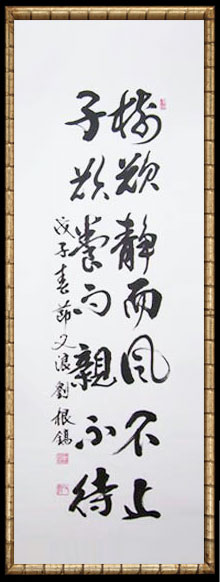 樹欲静而風不止
子欲養而親不待
戊子春節又浪劉根錫